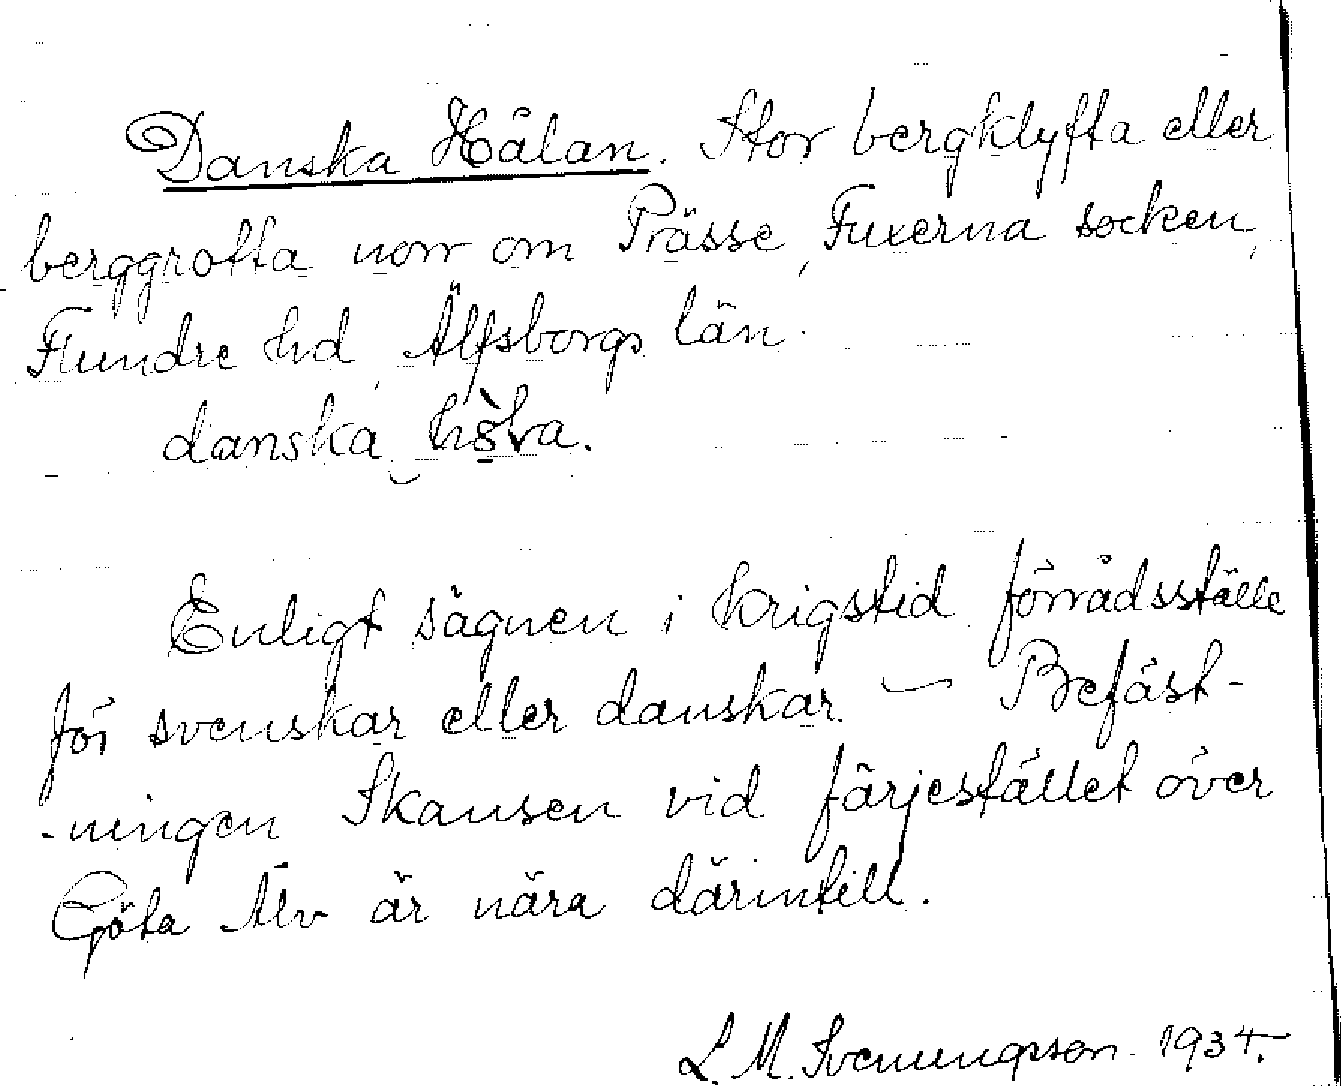 Danska Hålan. Stor bergklyfta eller
berggrotta norr om Prässe, Fuxerna socken,
Flundre hd, Älfsborgs län.
danska
Enligt sägnen i krigstid förrådsställe
för svenskar eller danskar. — Befäst-
-ningen Skansen vid färjestället över
Göta Älv är nära därintill.
L. M. Svenungsson 1934.